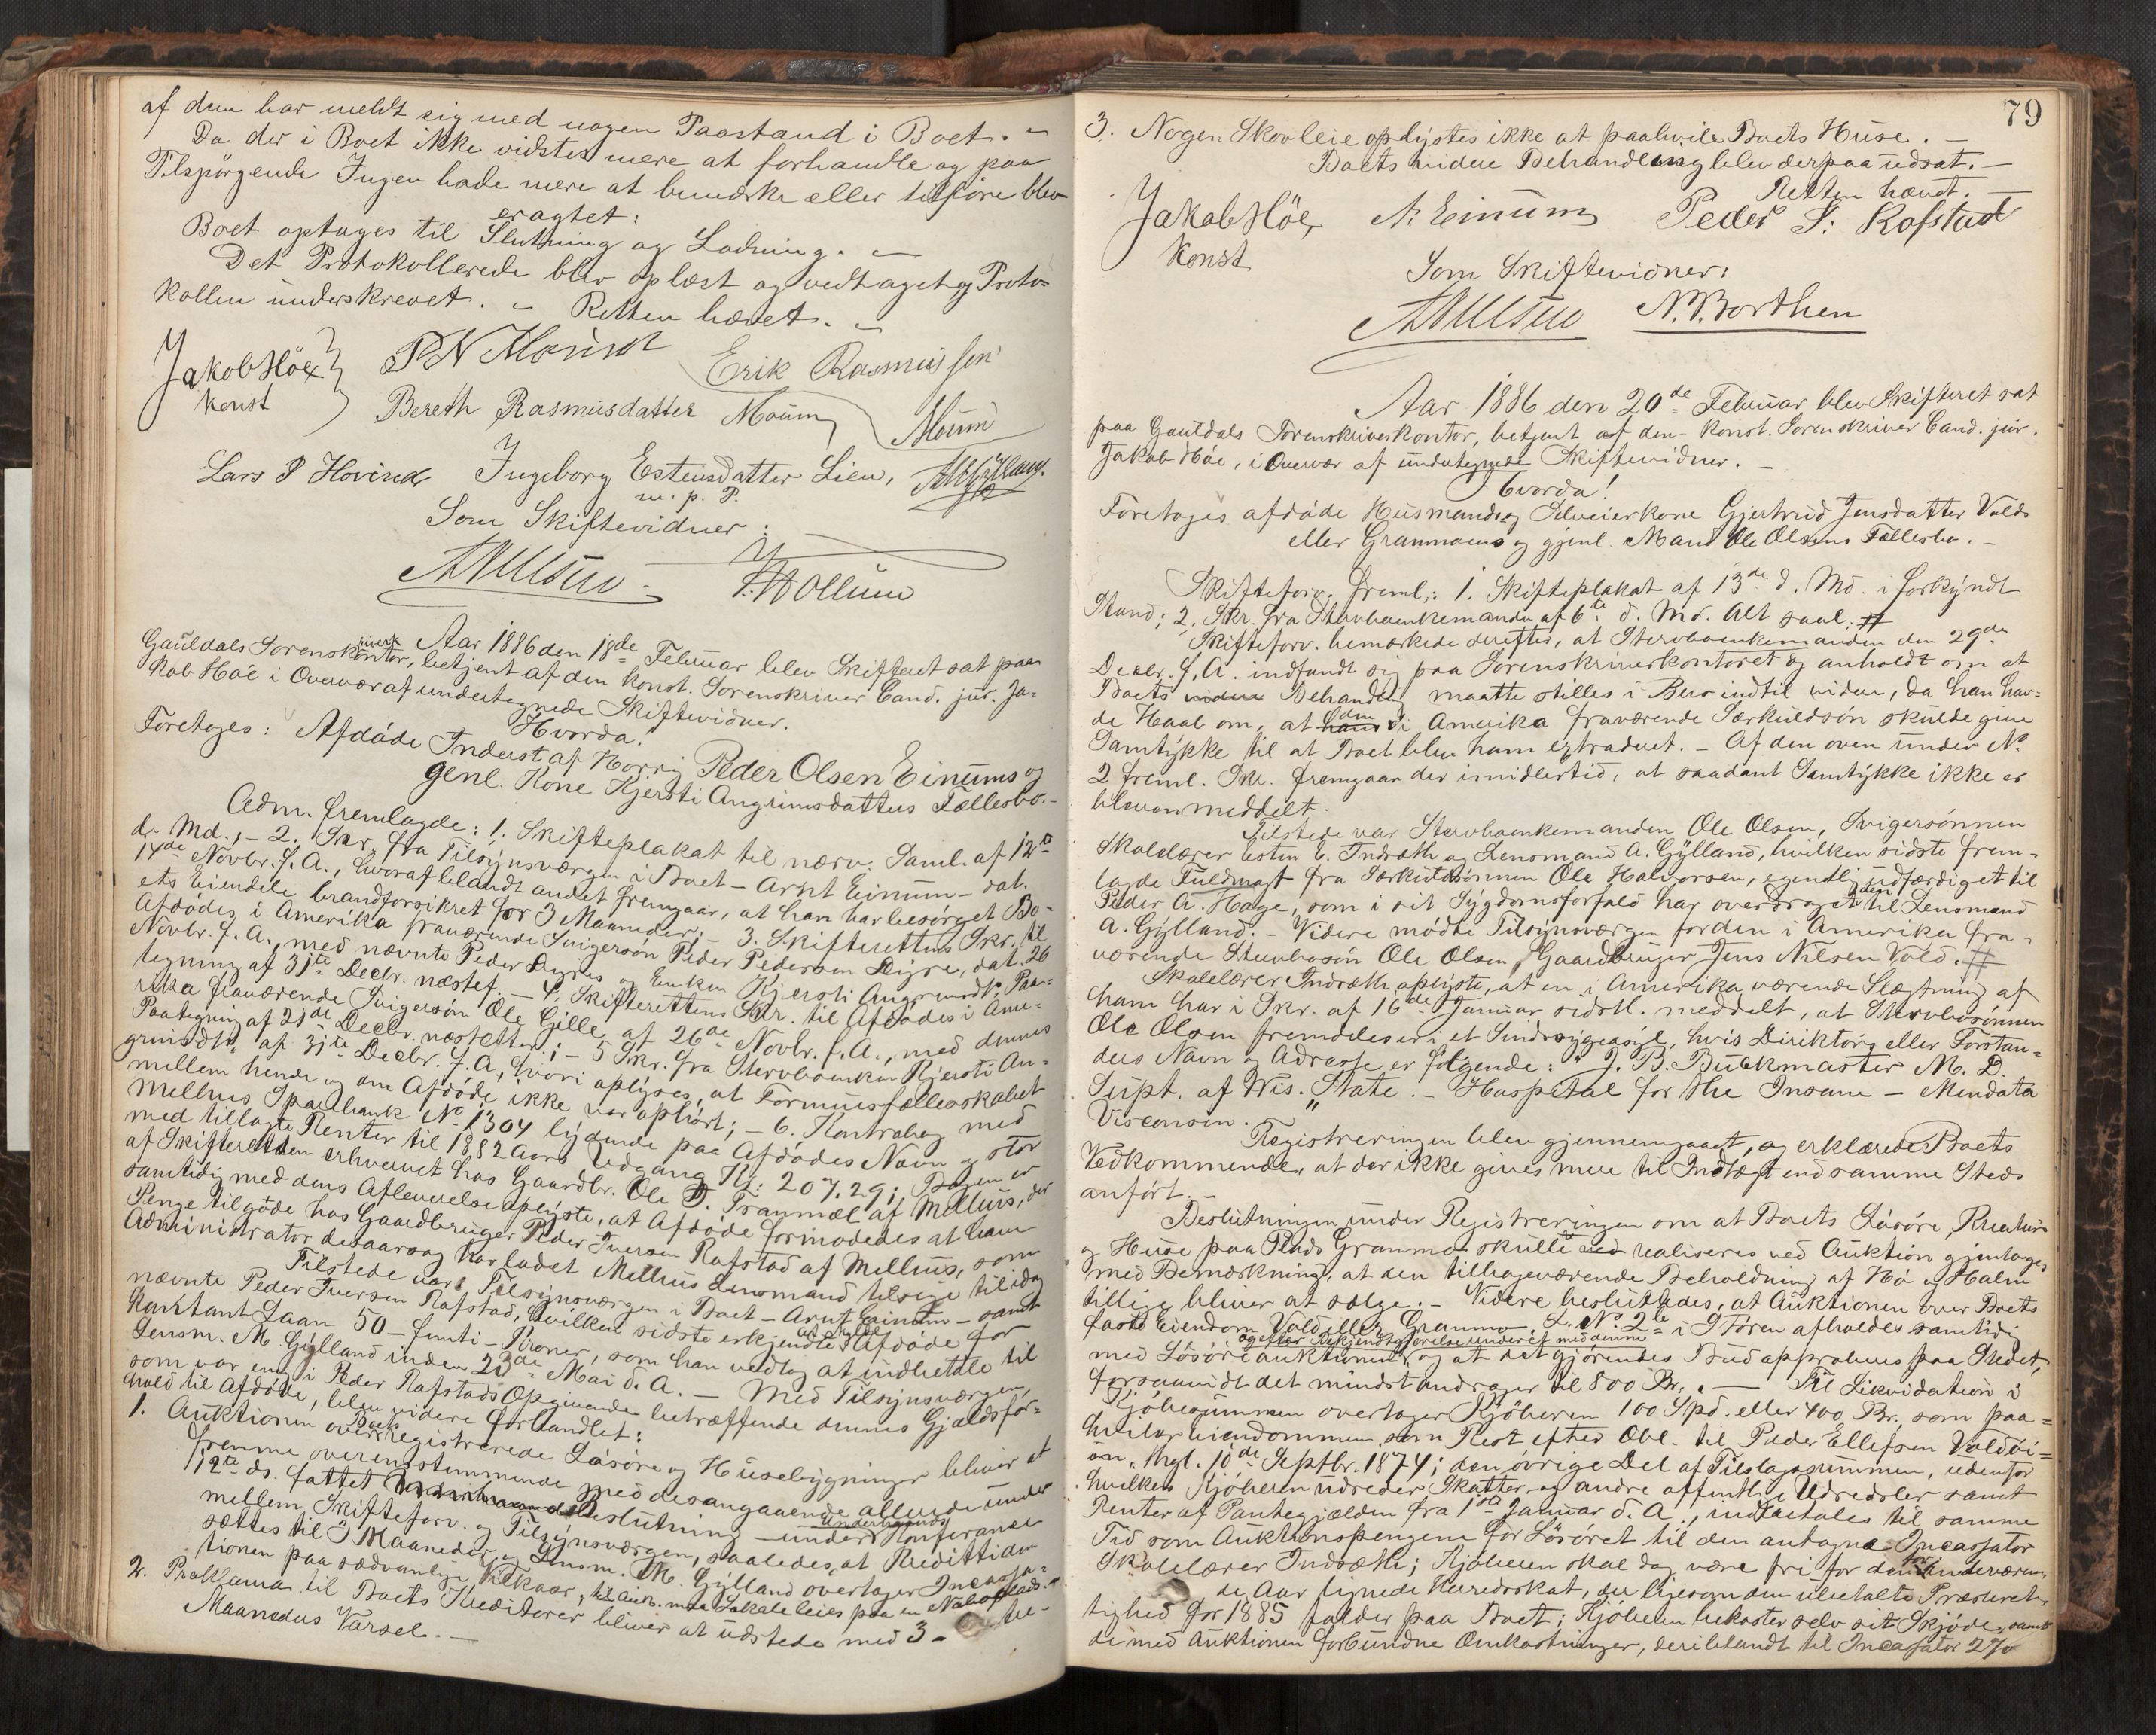 af dem har meldt sig med nogen Paastand i Boet. "
Da der i Boet ikke vidstes mere at forhandle og paa
Tilspørgende Ingen havde mere at bemærke eller tilføre blev
eragtet:
Boet optages til Slutning og Lodning. "
Det Protokollerede blev oplæst og vedtaget og Proto-
kollen underskrevet. " Retten hævet. "
Jakob Höe P N Erik Rasmussen
konst Bereth Rasmusdatter Moum Moum
Lars P Hovind Ingeborg Estensdatter Lien,
m. p. P.
Som Skiftevidner:
Aar 1886 den 18de Februar blev Skifteret sat paa
Gauldals Sorenskriverkontor, betjent af den konst. Sorenskriver Cand. jur. Ja-
kob Höe i Overvær af undertegnede Skiftevidner.
Hvorda!
Foretoges: Afdøde Inderst af Horrig Peder Olsen Einums og
genl. Kone Kjersti Angrimsdatters Fællesbo. -
Adm. fremlagde: 1. Skifteplakat til nærv. Saml. af 12te
ds Md., - 2. Skr. fra Tilsynsværgen i Boet - Arnt Einum - dat.
14de Novbr. f. A., hvoraf blandt andet fremgaar, at han har besørget Bo-
ets Eiendele brandforsikret for 3 Maaneder; - 3. Skifterettens Skr. til
Afdødes i Amerika fraværende Svigersøn Peder Pedersen Digre, dat. 26
Novbr. f. A., med nævnte Peder Digres og Enken Kjersti Angrimsdtrs Paa-
tegning af 31te Decbr. næstef. - 4. Skifterettens Skr. til Afdødes i Ame-
rika fraværende Svigersøn Ole Gille af 26de Novbr. f. A., med dennes
Paategning af 21de Decbr. næstefter; - 5 Skr. fra Stervboenken Kjersti An-
grimsdtr. af 31te Decbr. f. A., hvori oplyses, at Formuesfællesskabet
mellem hende og den Afdøde ikke var ophørt; - 6. Kontrabog med
Melhus Sparebank No 1304 lydende paa Afdødes Navn og stor
med tillagte Renter til 1882 Aars Udgang Kr: 207.29; Bogen er
af Skifteretten erhvervet hos Gaardbr. Ole D. Tranmæl af Melhus, der
samtidig med dens Aflevelse oplyste, at Afdøde formodedes at have
Penge tilgode hos Gaardbruger Peder Iversen Rofstad af Melhus, som
Administrator desaarsag har ladet Melhus Lensmand tilsige til idag
Tilstede var: Tilsynsværgen i Boet - Arnt Einum - samt
nævnte Peder Iversen Rofstad, hvilken sidste erkjendte at skylde Afdøde for
kontant Laan 50 - femti - Kroner, som han vedtog at indbetale til
Lensm. M. Gylland inden 23de Mai d. A. - Med Tilsynsværgen,
som var enig i Peder Rofstads Opgivende betræffende dennes Gjældsfor-
hold til Afdøde, blev videre forhandlet:
1. Auktionen over Boets registrerede Løsøre og Husebygninger bliver at
fremme overensstemmende med desangaaende allerede under
12te ds. fattet Beslutning - under Konferance
mellem Skifteforv. og Tilsynsværgen, saaledes, at Kredittiden
sættes til 3 Maaneder og Lensm. M. Gylland overtager Incassa-
tionen paa sædvanlige Vilkaar,
2. Proklama til Boets Kreditorer bliver at udstede med 3 -
Maaneders Varsel. -
79
3. Nogen Skovleie oplystes ikke at paahvile Boets Huse. -
Boets videre Behandling blev derpaa udsat. -
Retten hævet. -
Jakob Höe, A. Einum Peder I. Rofstad
konst
Som Skiftevidner:
N. P. Borthen
Aar 1886 den 20de Februar blev Skifteret sat
paa Gauldals Sorenskriverkontor, betjent af den konst. Sorenskriver Cand. jur.
Jakob Höe, i Overvær af undertegnede Skiftevidner. -
Hvorda!
Foretoges afdøde Husmands og Selveierkone Gjertrud Jensdatter Volds
eller Granmoens og gjenl. Mand Ole Olsens Fællesbo. -
Skifteforv. freml.: 1. Skifteplakat af 13de d. Md. i forkyndt
Stand; 2. Skr. fra Stervboenkemanden af 6te d. Md. Alt saal: #
Skifteforv. bemærkede derefter, at Stervboenkemanden den 29de
Decbr. f. A. indfandt sig paa Sorenskriverkontoret og anholdt om at
Boets videre Behandling maatte stilles i Bero indtil videre, da han hav-
de Haab om, at hans den i Amerika fraværende Særkuldsøn skulde give
Samtykke til at Boet blev ham extraderet. - Af den oven under No
2 freml. Skr. fremgaar der imidlertid, at saadant Samtykke ikke er
bleven meddelt.
Tilstede var Stervboenkemanden Ole Olsen, Svigersønnen
Skolelærer Esten E. Indsæth og Lensmand A. Gylland, hvilken sidste frem-
lagde Fuldmagt fra Særkuldsønnen Ole Halvorsen, egentlig udfærdiget til
Peder A. Hage, som i sit Sygdomsforfald har overdraget den til Lensmand
A. Gylland. - Videre mødte Tilsynsværgen for den i Amerika fra-
værende Stervbosøn Ole Olsen, Gaardbruger Jens Nilsen Vold. #
Skolelærer Indsæth oplyste, at en i Amerika værende Slægtning af
ham har i Skr. af 16de Januar sidstl. meddelt, at Stervbosønnen
Ole Olsen fremdeles er i et Sindssygeasyl, hvis Direktørs eller Forstan-
ders Navn og Adresse er følgende: "J. B. Buckmaster M. D.
Surpt. af Wis. State. - Hospetal for the Insane - Mendata
Visconsin."
Registreringen blev gjennemgaaet, og erklærede Boets
Vedkommende, at der ikke gives mere til Indtægt end samme Steds
anført. -
Beslutningen under Registreringen om at Boets Løsøre, Kreature
og Huse paa Plads Granmo skulle realiseres ved Auktion gjentoges
med Bemærkning, at den tilbageværende Beholdning af Hø og Halm
tillige bliver at sælge. - Videre besluttedes, at Auktionen over Boets
faste Eiendom Vold eller Granmo, L. No. 2 i Støren afholdes samtidig
med Løsøreauktionen og efter Bekjendtgjørelse under et med denne, og at det gjørendes Bud approberes paa Stedet,
forsaavidt det mindst andrager til 800 Kr. - Til Likvidation i
Kjøbesummen overtager Kjøberen 100 Spd. eller 400 Kr., som paa-
hviler Eiendommen som Rest efter Obl. til Peder Ellefsen Voldøi-
en, thgl. 10de Septbr. 1874; den øvrige Del af Tilslagssummen, udenfor
hvilken Kjøberen udreder Skatter og andre offentlige Udredsler samt
Renter af Pantegjælden fra 1ste Januar d. A., indbetales til samme
Tid som Auktionspengene for Løsøret til den antagne Incassator
Skolelærer Indsæth; Kjøberen skal dog være fri for den for indeværen-
de Aar lignede Herredsskat, der ligesom den ubetalte Presteret-
tighed for 1885 falder paa Boet; Kjøberen bekoster selv sit Skjøde, samt
de med Auktionen forbundne Omkostninger, deriblandt til Incasator 2%